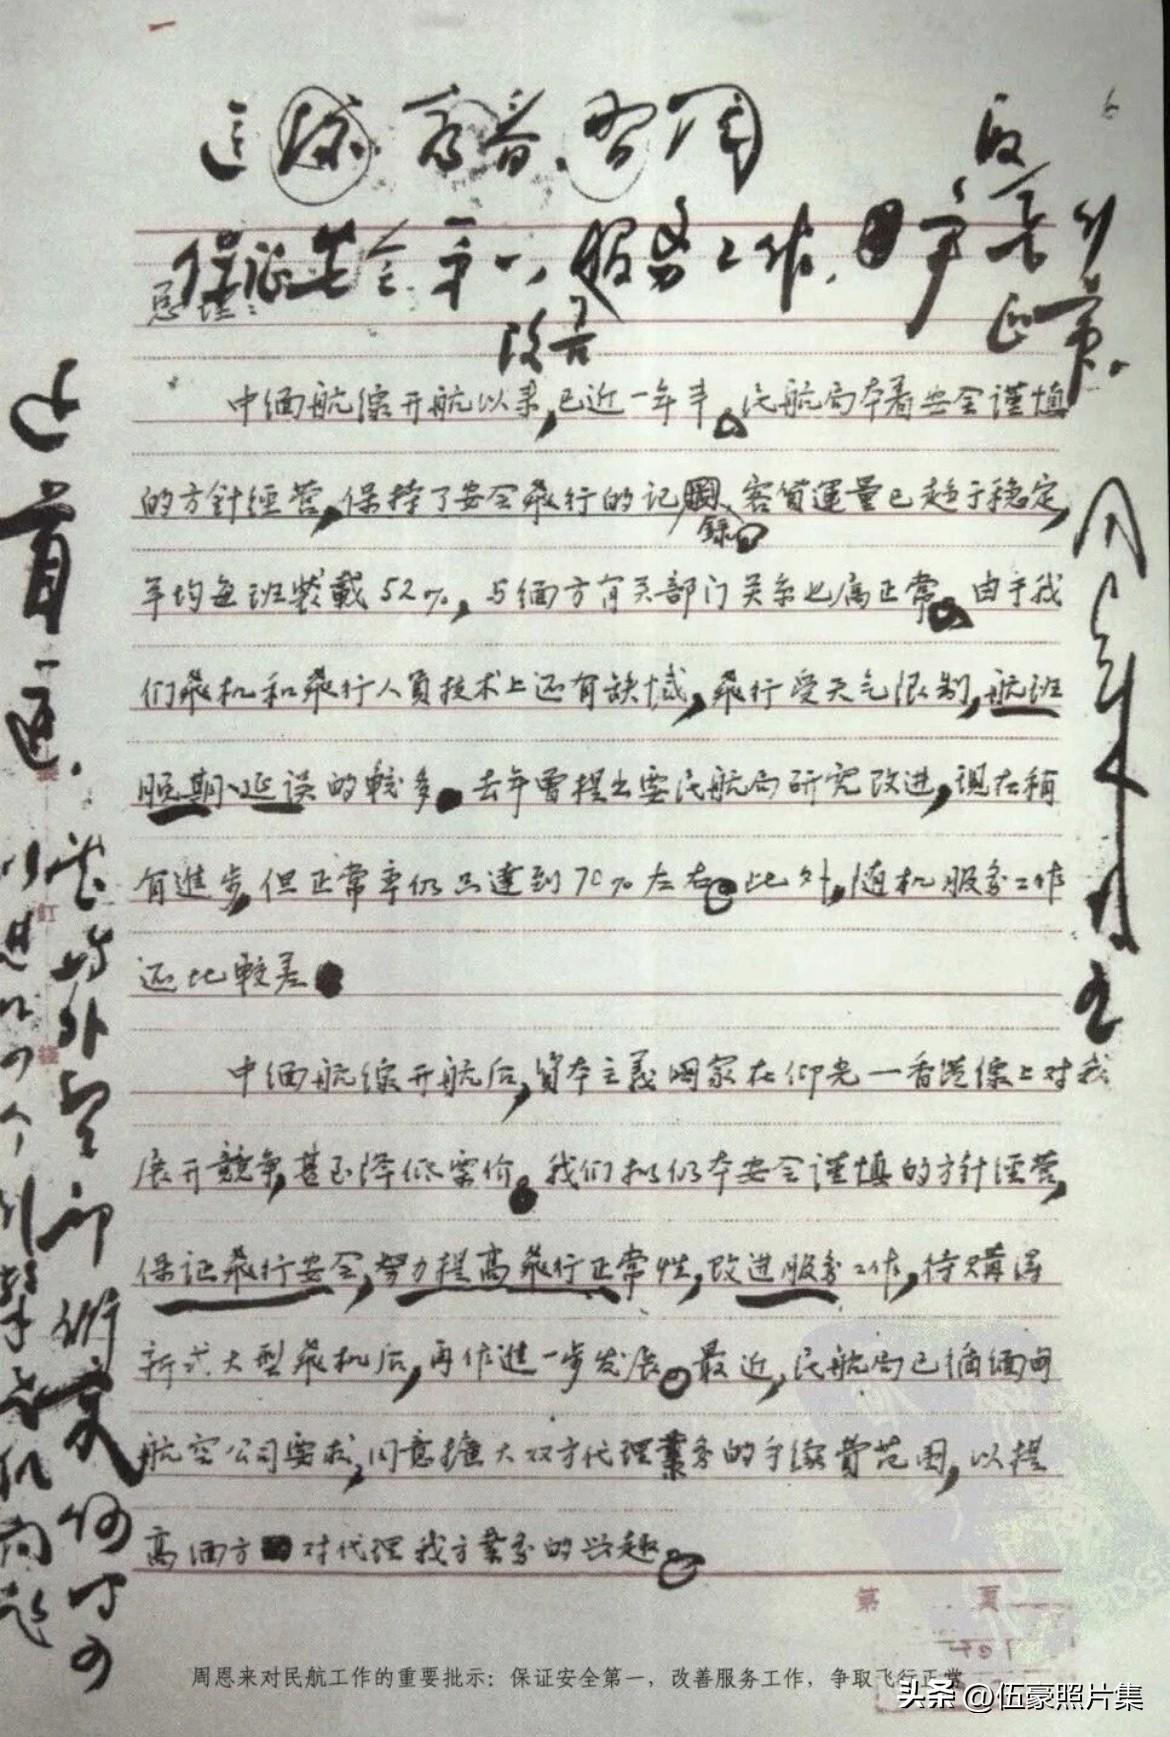 保证安全第一，改善服务工作，争取飞行正常。
周恩来
总理：
中缅航線开航以来，已近一年半。民航局本着安全谨慎
的方針經营，保持了安全飛行的记録。客貨運量已趋于稳定，
平均每班装載52%，与缅方有关部门关系也属正常。由于我
们飛机和飛行人員技术上还有缺憾，飛行受天气限制，航班
脱期、延误的較多。去年曾提出要民航局研究改进，現在稍
有進步，但正常率仍只達到70%左右。此外，随机服务工作
还比較差。
中缅航線开航后，資本主義國家在仰光—香港線上对我
展开競争，甚至降低票价。我们拟仍本安全谨慎的方针经营，
保证飛行安全，努力提高飛行正常性，改进服务工作，待購得
新式大型飛机后，再作進一步发展。最近，民航局已循缅甸
航空公司要求，同意擴大双方代理業务的手续费范围，以提
高缅方对代理我方業务的兴趣。
装
訂
線
第 页
周恩来对民航工作的重要批示：保证安全第一，改善服务工作，争取飞行正常
头条 @伍豪照片集